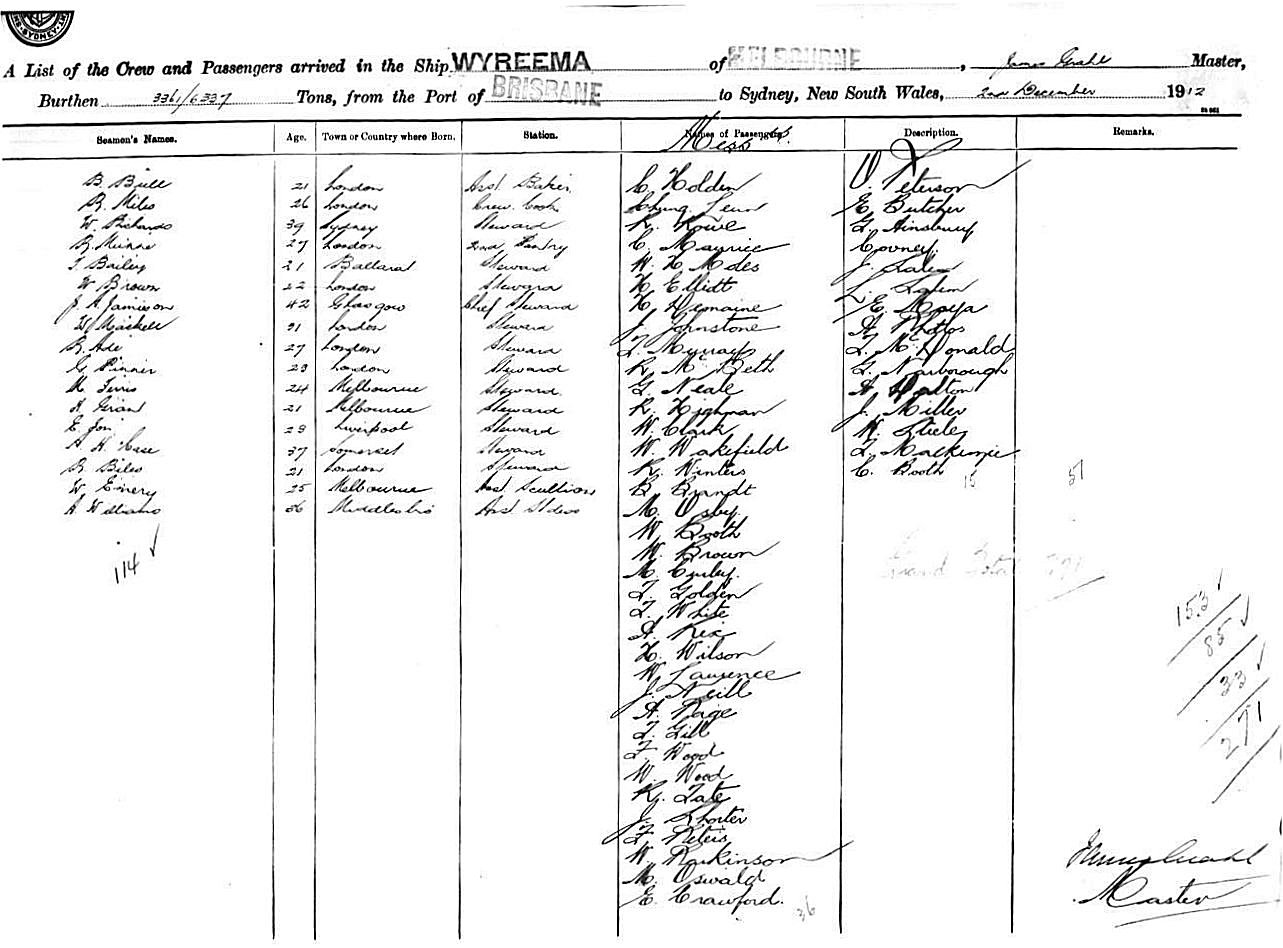 SYDNEY
A List of the Crew and Passengers arrived in the Ship WYREEMA of MELBOURNE, James Grahl Master,
Burthen 3361/6337 Tons, from the Port of BRISBANE to Sydney, New South Wales, 2nd December 1912
Seamen's Names. Age. Town or Country where Born. Station. Names of Passengers. Description. Remarks.
Mess
B. Bull 21 London Asst Baker C. Holden O. Peterson
R. Miles 26 London Crew Cook Chung E. Butcher
W. Richards 39 Sydney Steward R. Rowe G. Ainsbury
R. 27 London 2nd Pantry C. Maurice Covney
T. Bailey 21 Ballarat Steward W. H. Moles J. Salem
W. Brown 22 London Steward H. Elliott L. Salem
J. A. Jamieson 42 Glasgow Chief Steward H. Demaine E. Moya
W. Maskell 31 London Steward J. Johnstone A. Photos
R. Ade 27 London Steward T. Murray T. McDonald
G. Pinner 23 London Steward R. McBeth G. Narborough
24 Melbourne Steward G. Neale A. Dalton
21 Melbourne Steward R. Highman J. Miller
E. 23 Liverpool Steward W. Clark W. Steele
A. H. Case 37 Somerset Steward W. Wakefield T. Mackenzie
R. Biles 21 London Steward R. Winters C. Booth
15 51
W. Emery 25 Melbourne Asst Scullion B. Brandt
A. Williams 36 Asst M. Osby
W. Booth
114 W. Brown
M. Curley
Grand Total 271
T. Golden
153
T. White
85
A. Rix
H. Wilson
33
W. Laurence
J. Neill
271
A. Page
T. Gill
F. Wood
W. Wood
R. Tate
J. Shorter
F. Peters
W. Parkinson
James Grahl
M. Oswald
Master
E. Crawford.
36